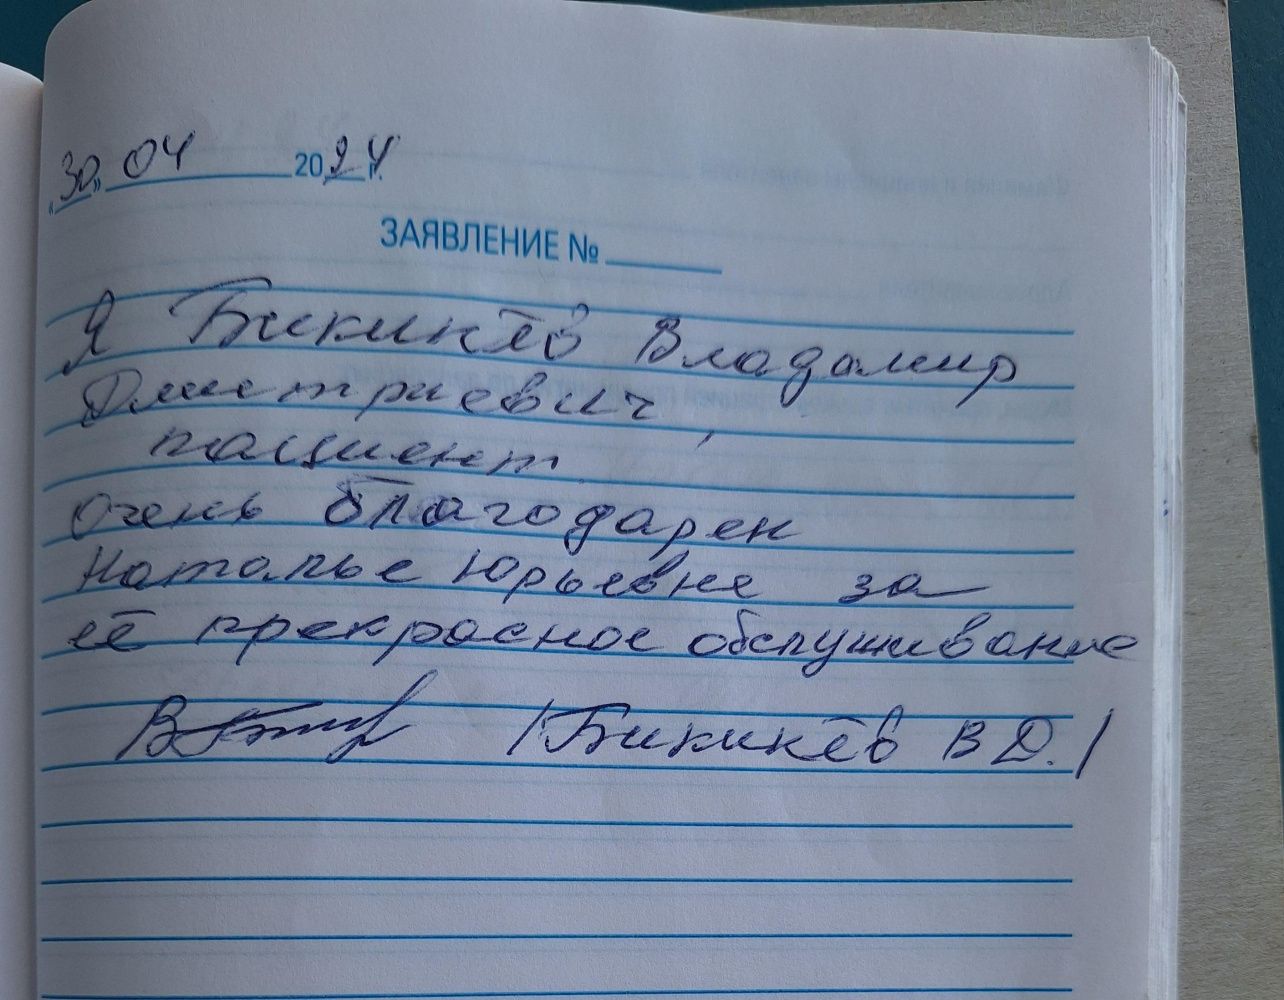 "30" 04 2024 г.
ЗАЯВЛЕНИЕ № ______
Я Бикинёв Владимир
Дмитриевич,
пациент
очень благодарен
Наталье Юрьевне за
её прекрасное обслуживание
/Бикинёв В Д./